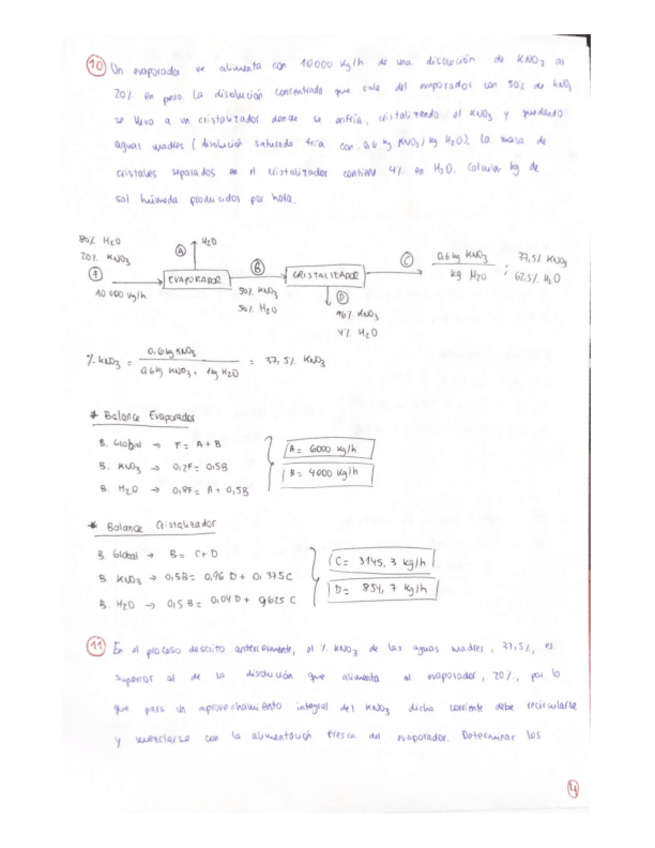 10 Un evaporador se alimenta con 10000 kg/h de una disolución de KNO3 al
20% en peso. La disolución concentrada que sale del evaporador con 50% de KNO3
se lleva a un cristalizador donde se enfría, cristalizando el KNO3 y quedando
aguas madres (disolución saturada fría con 0,6 kg KNO3/kg H2O). La masa de
cristales separados en el cristalizador contiene 4% en H2O. Calcular kg de
sal húmeda producidos por hora.
80% H2O
20% KNO3
F
10 000 kg/h
A
H2O
EVAPORADOR
B
50% KNO3
50% H2O
CRISTALIZADOR
D
96% KNO3
4% H2O
C
0,6 kg KNO3 / kg H2O ; 37,5% KNO3
62,5% H2O
% KNO3 = 0,6 kg KNO3 / 0,6 kg KNO3 + 1 kg H2O = 37,5% KNO3
* Balance Evaporador
B. Global → F = A + B
B. KNO3 → 0,2F = 0,5B
B. H2O → 0,8F = A + 0,5B
A = 6000 kg/h
B = 4000 kg/h
* Balance Cristalizador
B. Global → B = C + D
B. KNO3 → 0,5B = 0,96 D + 0,375C
B. H2O → 0,5 B = 0,04 D + 0,625 C
C = 3145,3 kg/h
D = 854,7 kg/h
11 En el proceso descrito anteriormente, el % KNO3 de las aguas madres, 37,5%, es
superior al de la disolución que alimenta al evaporador, 20%, por lo
que para un aprovechamiento integral del KNO3 dicha corriente debe recircularse
y mezclarse con la alimentación fresca del evaporador. Determinar los
4